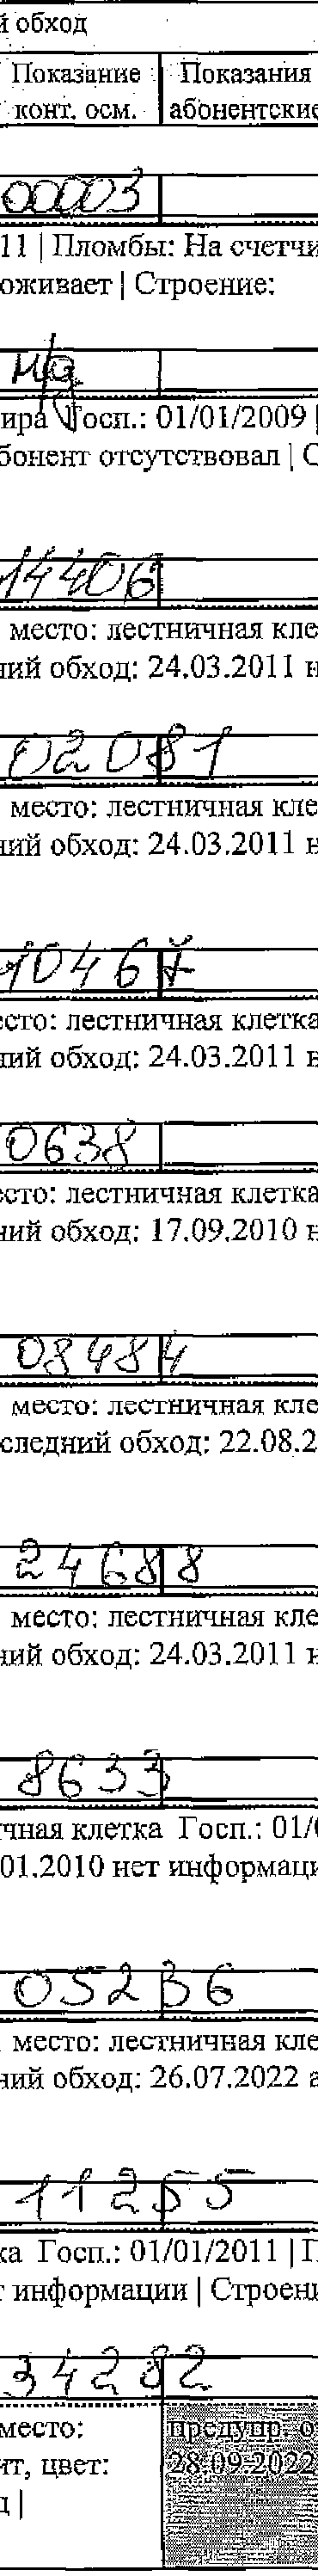 й обход
Показание Показания
конт. осм. абонентские
00003
11 | Пломбы: На счетчи
оживает | Строение:
н/д
ира Госп.: 01/01/2009 |
бонент отсутствовал | С
14406
место: лестничная кле
ний обход: 24.03.2011 н
02081
место: лестничная кле
ний обход: 24.03.2011 н
10467
есто: лестничная клетка
ний обход: 24.03.2011 н
0638
есто: лестничная клетка
ний обход: 17.09.2010 н
08484
место: лестничная кле
следний обход: 22.08.2
24688
место: лестничная кле
ний обход: 24.03.2011 н
8633
чная клетка Госп.: 01/0
01.2010 нет информаци
05236
место: лестничная кле
ний обход: 26.07.2022 а
11255
ка Госп.: 01/01/2011 | П
т информации | Строени
34282
место: предупр. о
ит, цвет: 28.09.2022
д |